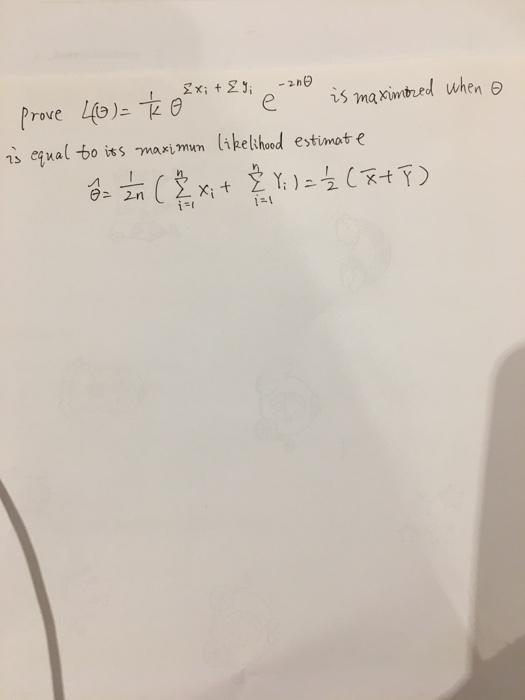 prove L(θ) = 1/k θ^(Σxi + Σyi) e^(-2nθ) is maximized when θ
is equal to its maximun likelihood estimate
θ̂ = 1/2n ( Σ_{i=1}^{n} xi + Σ_{i=1}^{n} Yi ) = 1/2 ( x̄ + Ȳ )